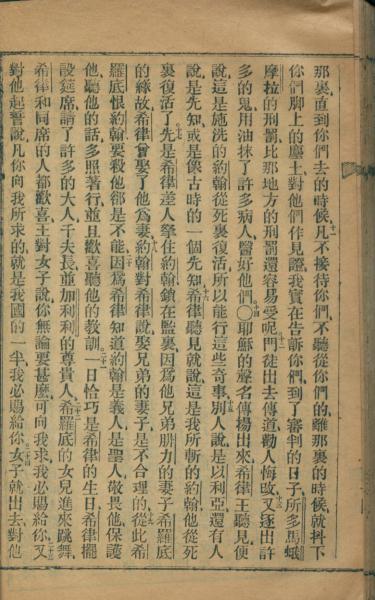 那裏、直到你們去的時候、凡不接待你們、不聽從你們的、離那裏的時候、就抖下
你們脚上的塵土、對他們作見證、我實在告訴你們、到了審判的日子、所多馬蛾
摩拉的刑罰、比那地方的刑罰、還容易受呢、門徒出去傳道、勸人悔改、又逐出許
多的鬼、用油抹了許多病人、醫好他們、〇耶穌的聲名傳揚出來、希律王聽見、便
說、這是施洗的約翰從死裏復活、所以能行這些奇事、別人說、是以利亞、還有人
說、是先知、或是像古時的一個先知、希律聽見就說、這是我所斬的約翰、他從死
裏復活了、先是希律差人拏住約翰、鎖在監裏、因爲他兄弟腓力的妻子希羅底
的緣故、希律曾娶了他爲妻、約翰對希律說、娶兄弟的妻子、是不合理的、從此希
羅底恨約翰、要殺他、卻是不能、因爲希律知道約翰是義人、是聖人、敬畏他、保護
他、聽他的話、多照著行、並且歡喜聽他的教訓、一日恰巧是希律的生日、希律擺
設筵席、請了許多的大人、千夫長、並加利利的尊貴人、希羅底的女兒進來跳舞、
希律和同席的人都歡喜、王對女子說、你無論要甚麽、可向我求、我必賜給你、又
對他起誓說、凡你向我所求的、就是我國的一半、我必賜給你、女子就出去對他